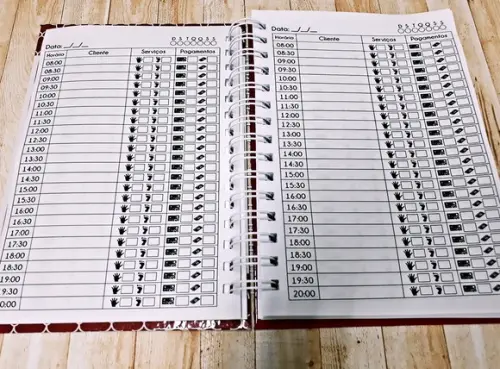 Data: __/__/__ D S T Q Q S S
Horário Cliente Serviços Pagamentos
08:00
08:30
09:00
09:30
10:00
10:30
11:00
11:30
12:00
12:30
13:00
13:30
14:00
14:30
15:00
15:30
16:00
16:30
17:00
17:30
18:00
18:30
19:00
9:30
0:00
Data: __/__/__ D S T Q Q S S
Horário Cliente Serviços Pagamentos
08:00
08:30
09:00
09:30
10:00
10:30
11:00
11:30
12:00
12:30
13:00
13:30
14:00
14:30
15:00
15:30
16:00
16:30
17:00
17:30
18:00
18:30
19:00
19:30
20:00